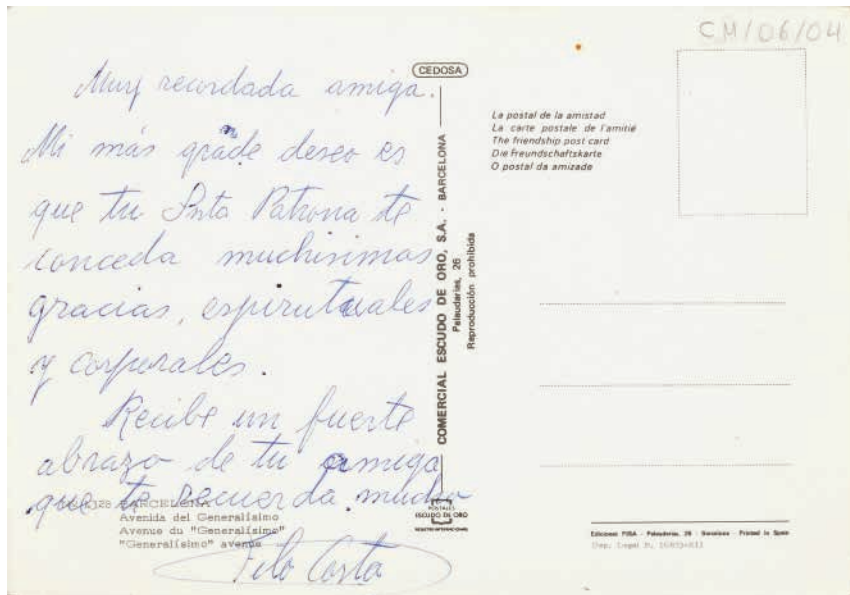 CM/06/04
Muy recordada amiga.
Mi más grande deseo es
que tu Snta Patrona te
conceda muchisimas
gracias, espirituales
y corporales.
Recibe un fuerte
abrazo de tu amiga
que te recuerda mucho
Filo Costa
BARCELONA
Avenida del Generalísimo
Avenue du "Generalísimo"
"Generalísimo" avenue
CEDOSA
COMERCIAL ESCUDO DE ORO, S.A. - BARCELONA
Palaudarias, 26
Reproducción prohibida
POSTALES
ESCUDO DE ORO
La postal de la amistad
La carte postale de l'amitié
The friendship post card
Die Freundschaftskarte
O postal da amizade
Ediciones FISA - Palaudarias, 26 - Barcelona - Printed in Spain
Dep. Legal B.